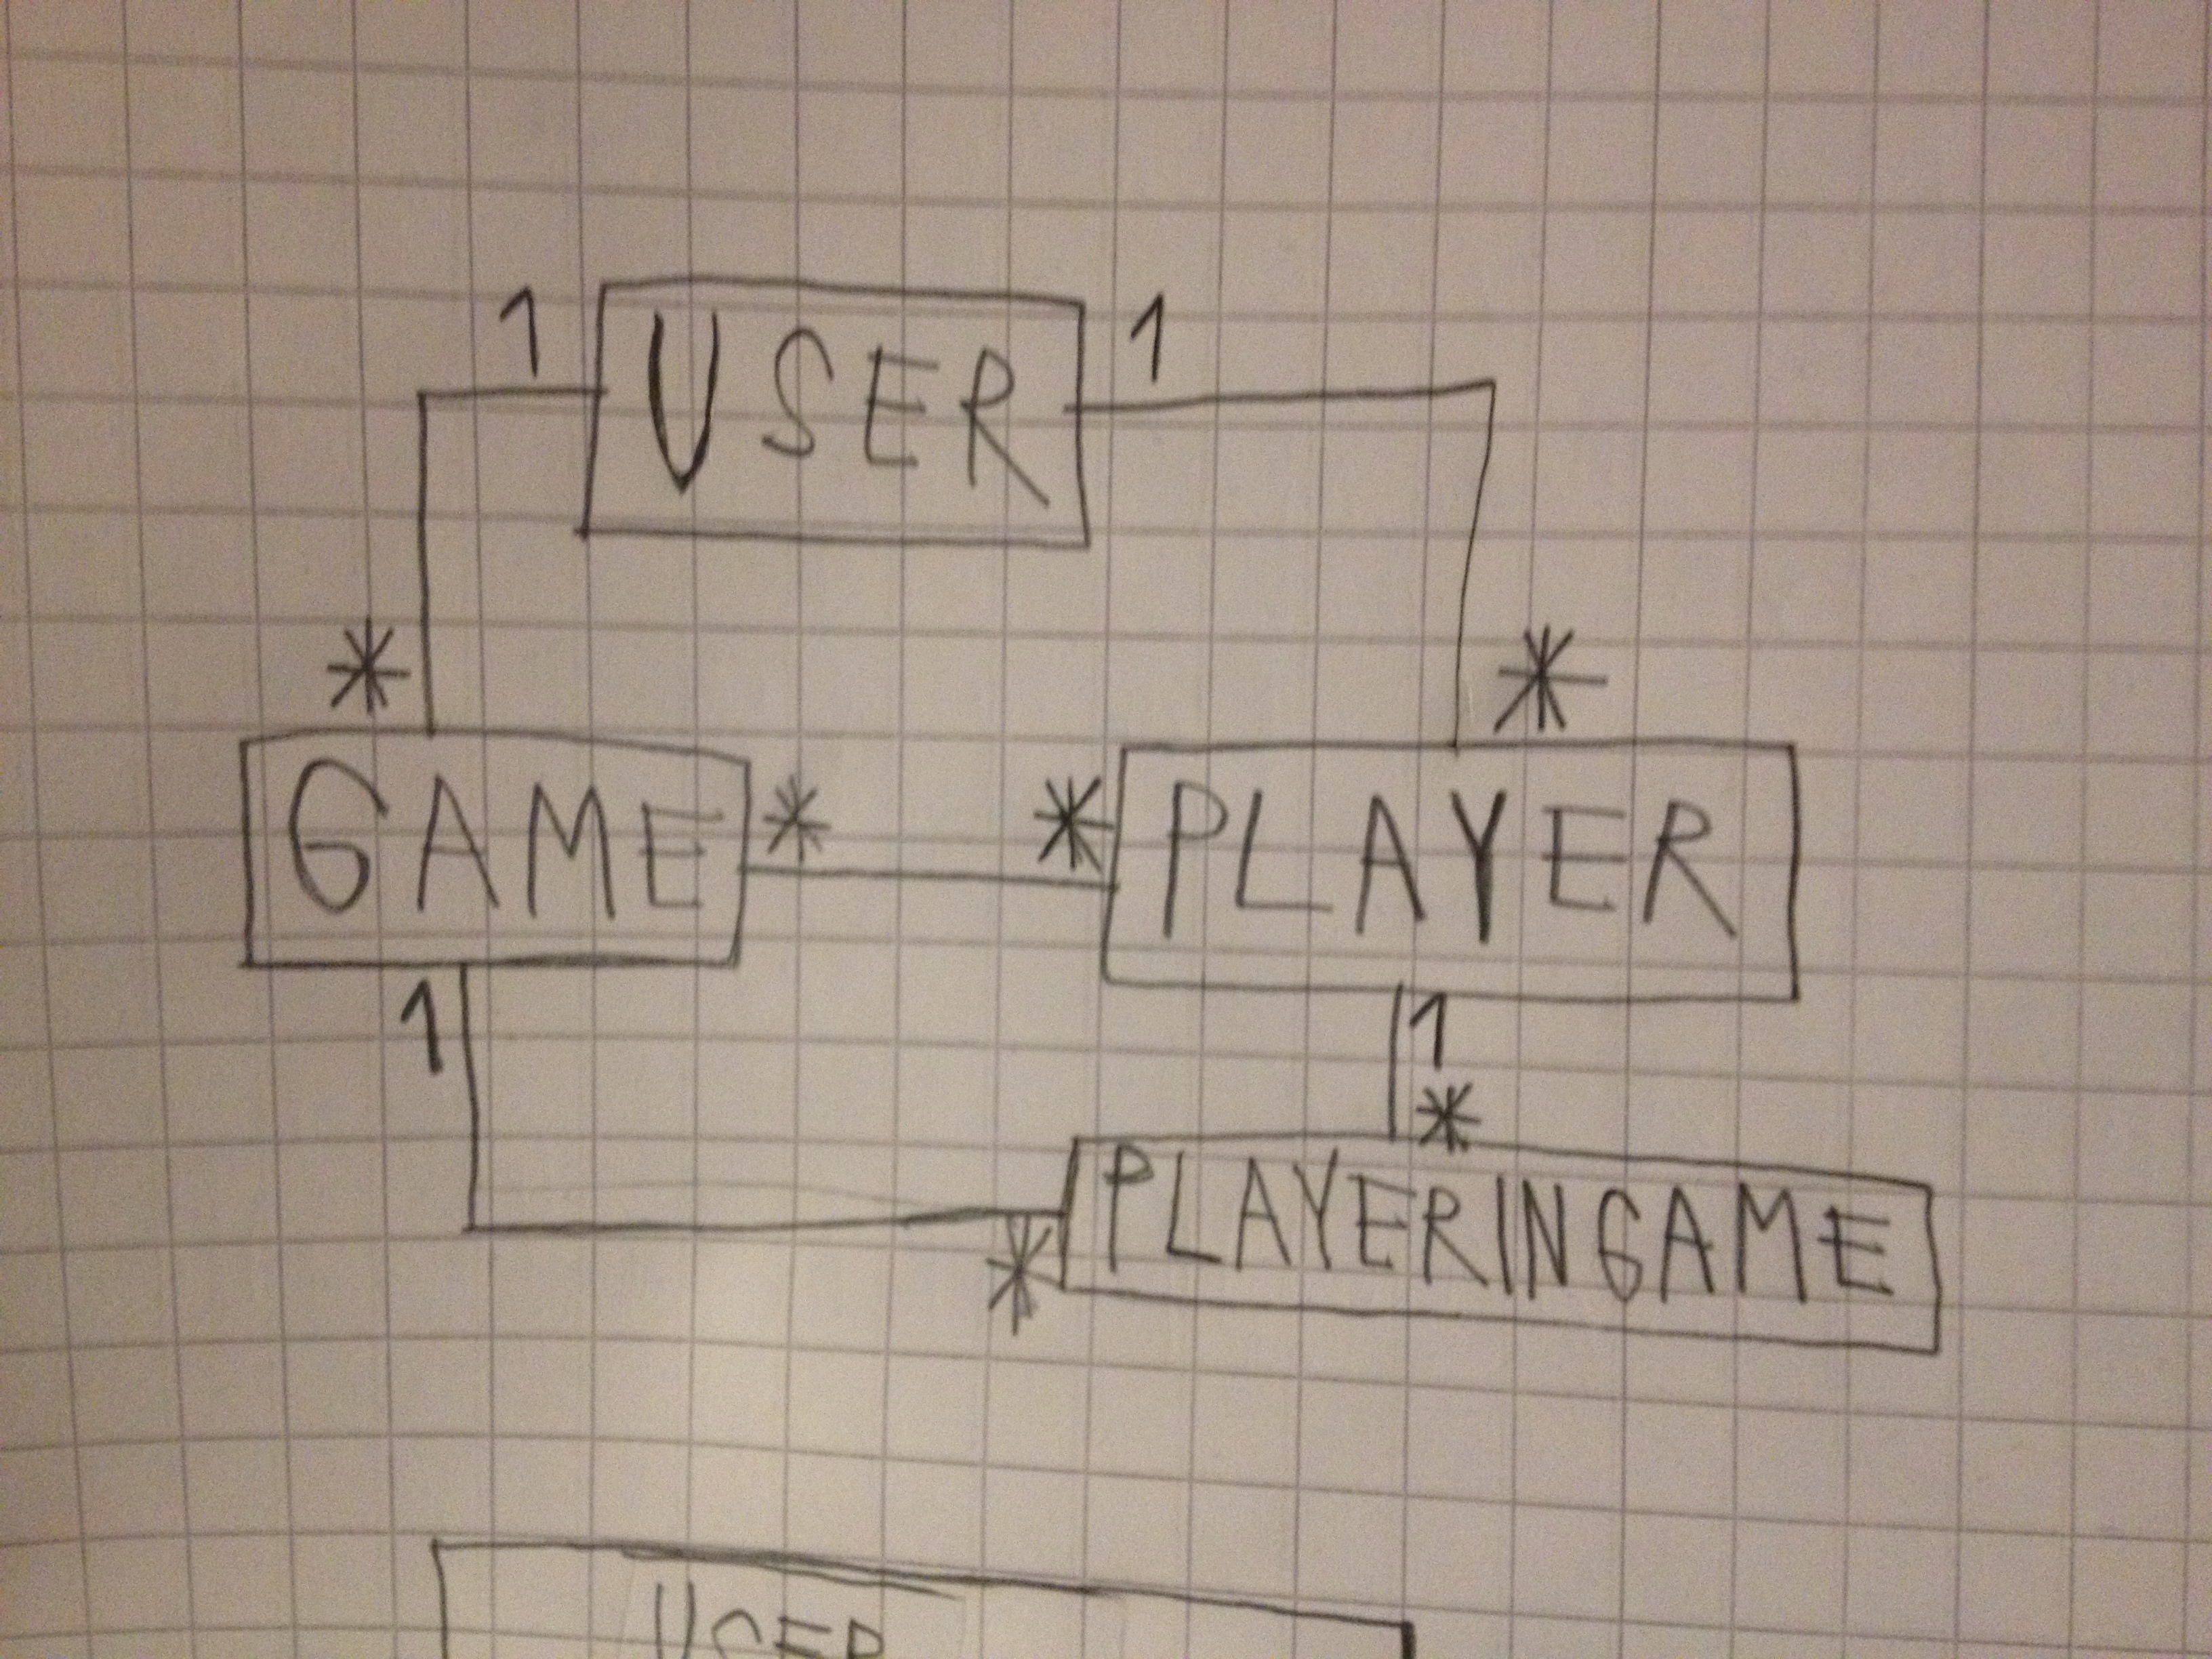 1 USER 1
* *
GAME * * PLAYER
1 1
*
PLAYERINGAME
*
USER